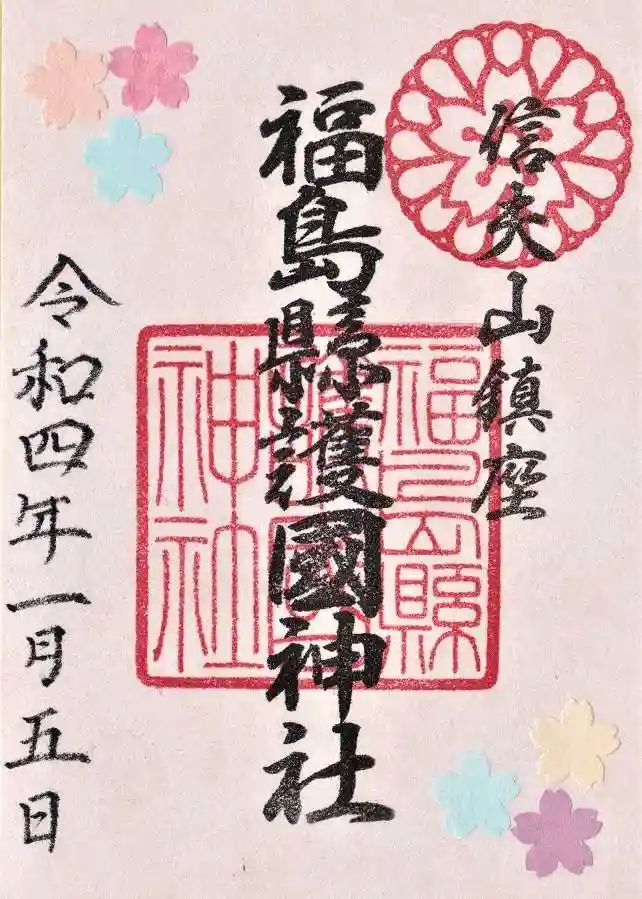 信夫山鎮座
福島縣護國神社
福島縣護國神社
令和四年一月五日